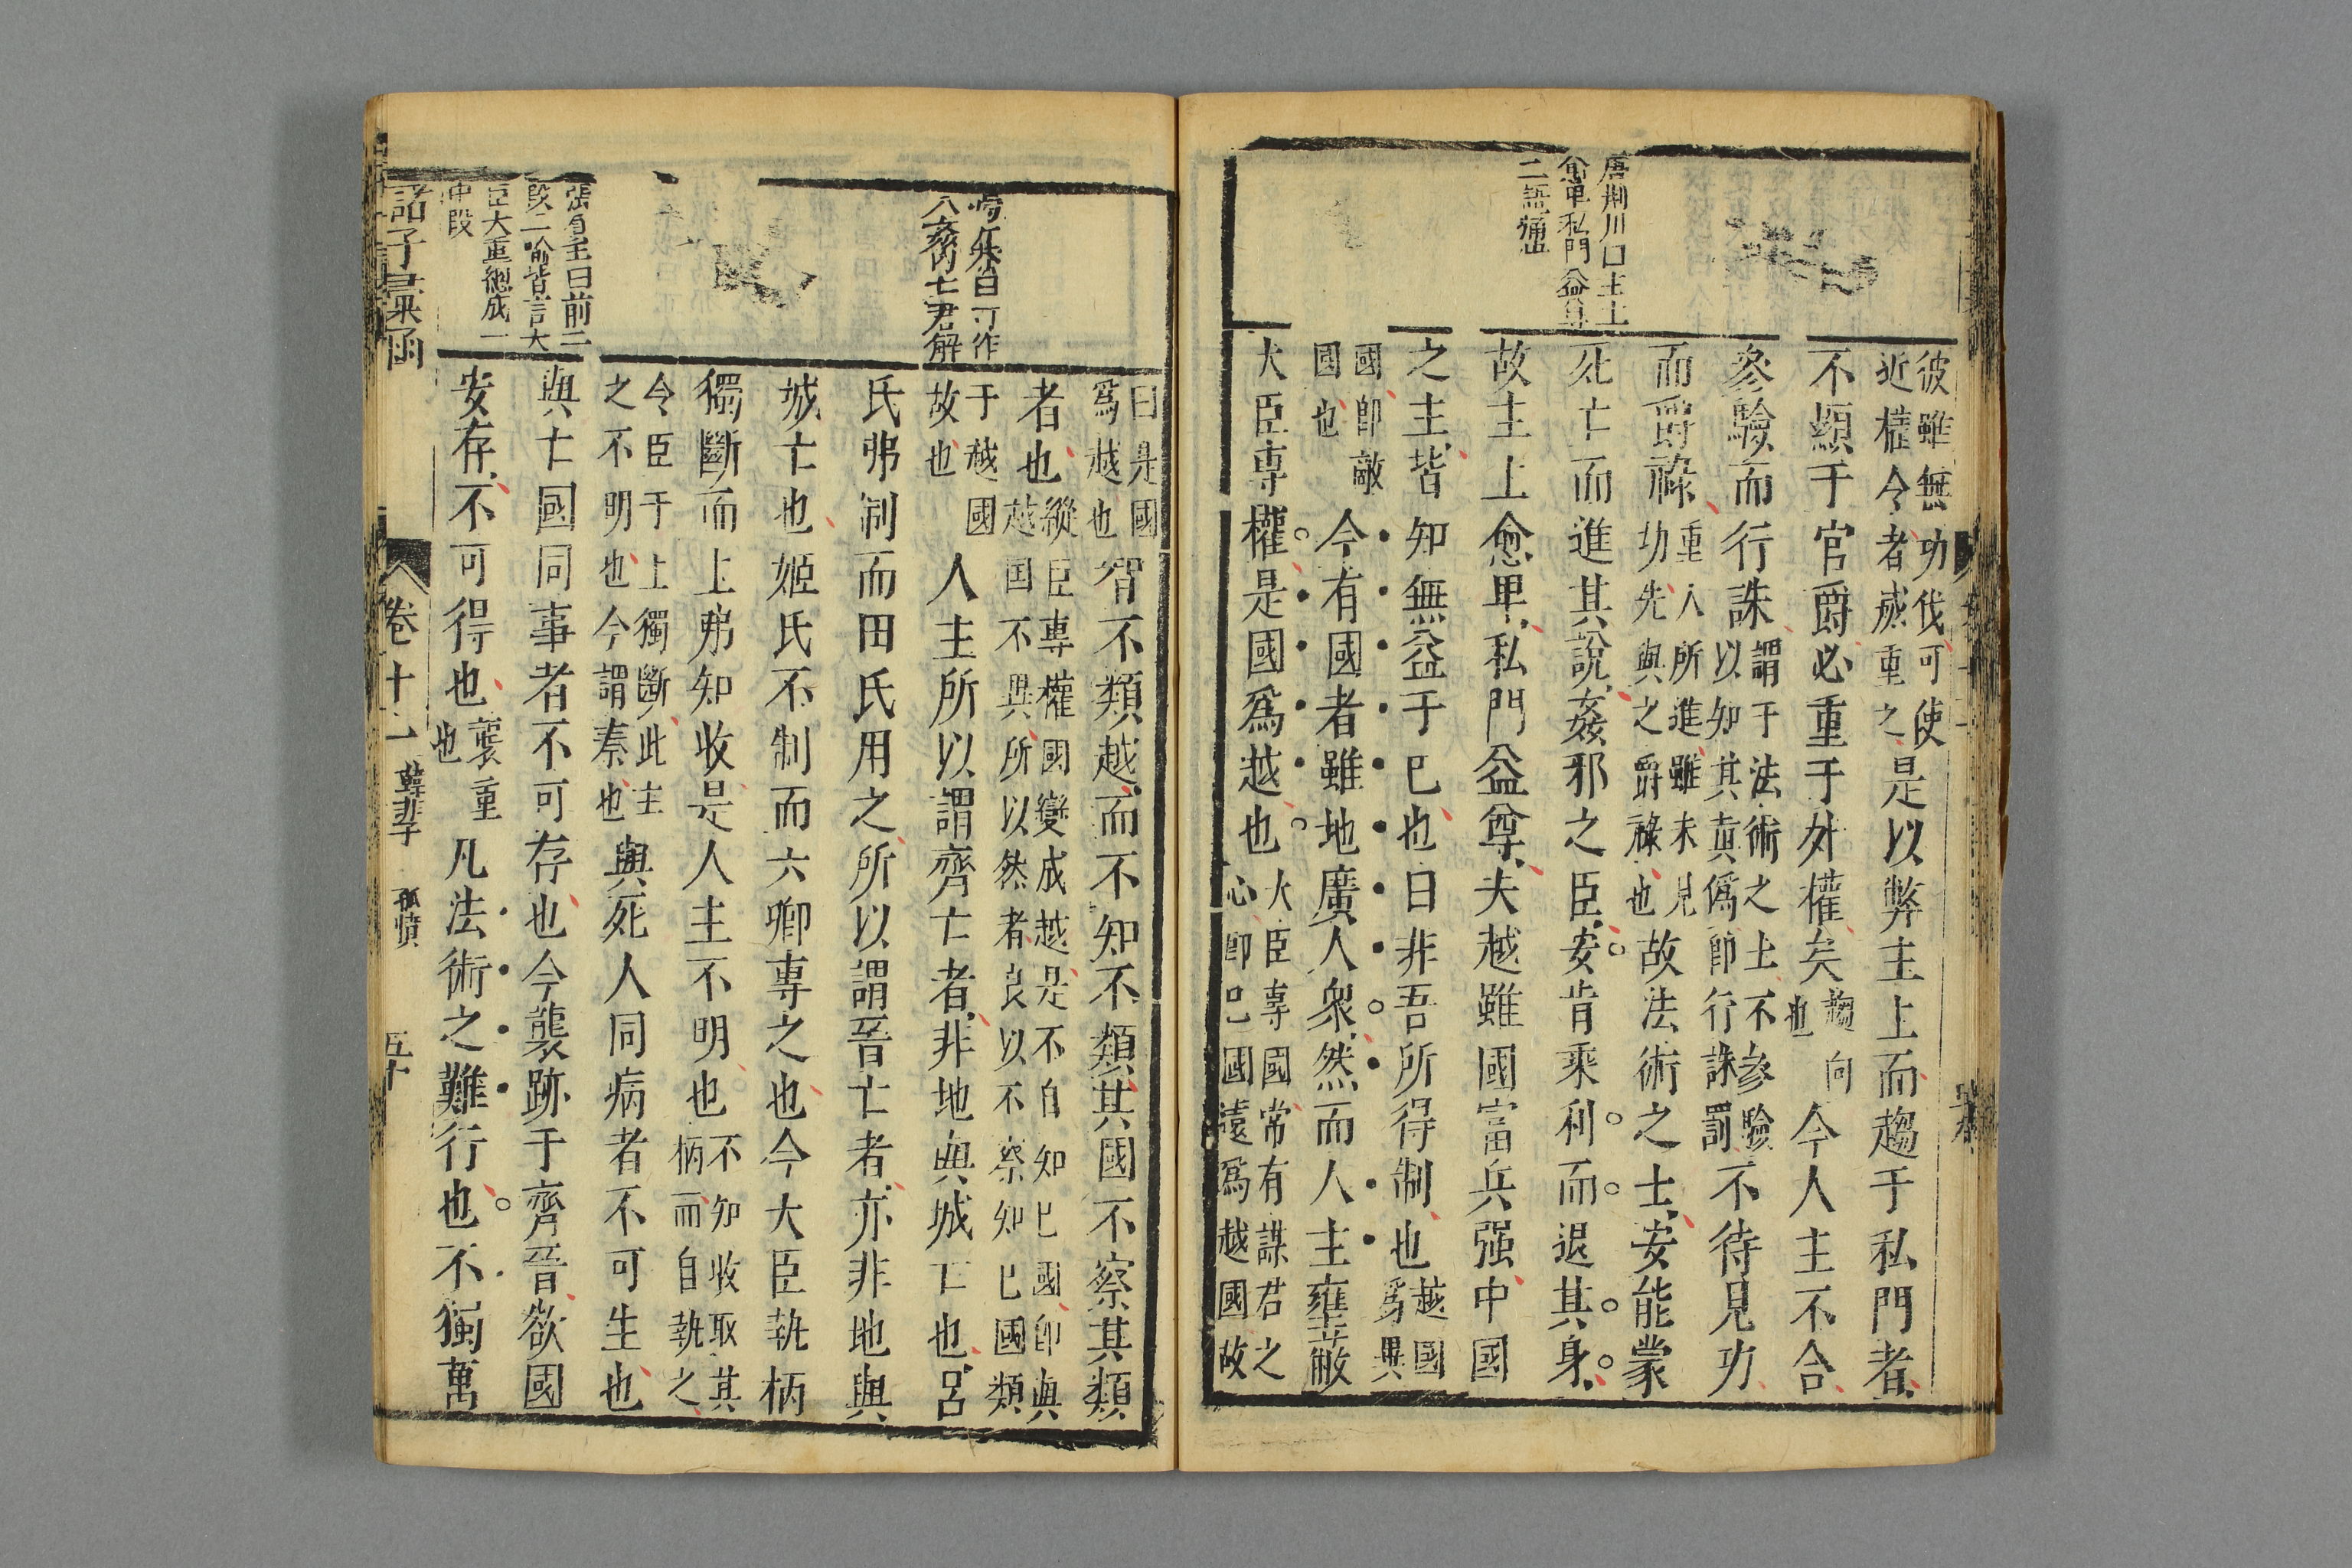 唐荊川曰主上
愈卑私門益尊
二語痛
彼雖無功伐可使
近權令者威重之
是以弊主上而趨于私門者
不顯于官爵必重于外權矣
趨向
也
今人主不合
參驗而行誅
謂于法術之士不參驗
以知其真偽即行誅罰
不待見功
而爵祿
重人所進雖未見
功先與之爵祿也
故法術之士安能蒙
死亡而進其說姦邪之臣安肯乘利而退其身
故主上愈卑私門益尊夫越雖國富兵强中國
之主皆知無益于已也曰非吾所得制也
越國
爲異
國即敵
國也
今有國者雖地廣人衆然而人主壅蔽
大臣專權是國爲越也
大臣專國常有謀君之
心即已國遠爲越國故
曰是國
爲越也
智不類越而不知不類其國不察其類
者也
縱臣專權國變成越是不自知已國即與
越国不異所以然者良以不察知已國類
于越國
故也
人主所以謂齊亡者非地與城亡也呂
氏弗制而田氏用之所以謂晉亡者亦非地與
城亡也姬氏不制而六卿專之也今大臣執柄
獨斷而上弗知收是人主不明也
不知收取其
柄而自執之
令臣于上獨斷此主
之不明也今謂秦也
與死人同病者不可生也
與亡國同事者不可存也今襲跡于齊晉欲國
安存不可得也
襲重
也
凡法術之難行也不獨萬
日可作
八姦內七君解
張賓王曰前二
段二喻皆言大
臣大重總成一
中段
諸子彙函
卷十一
韓非子
孤憤
五十